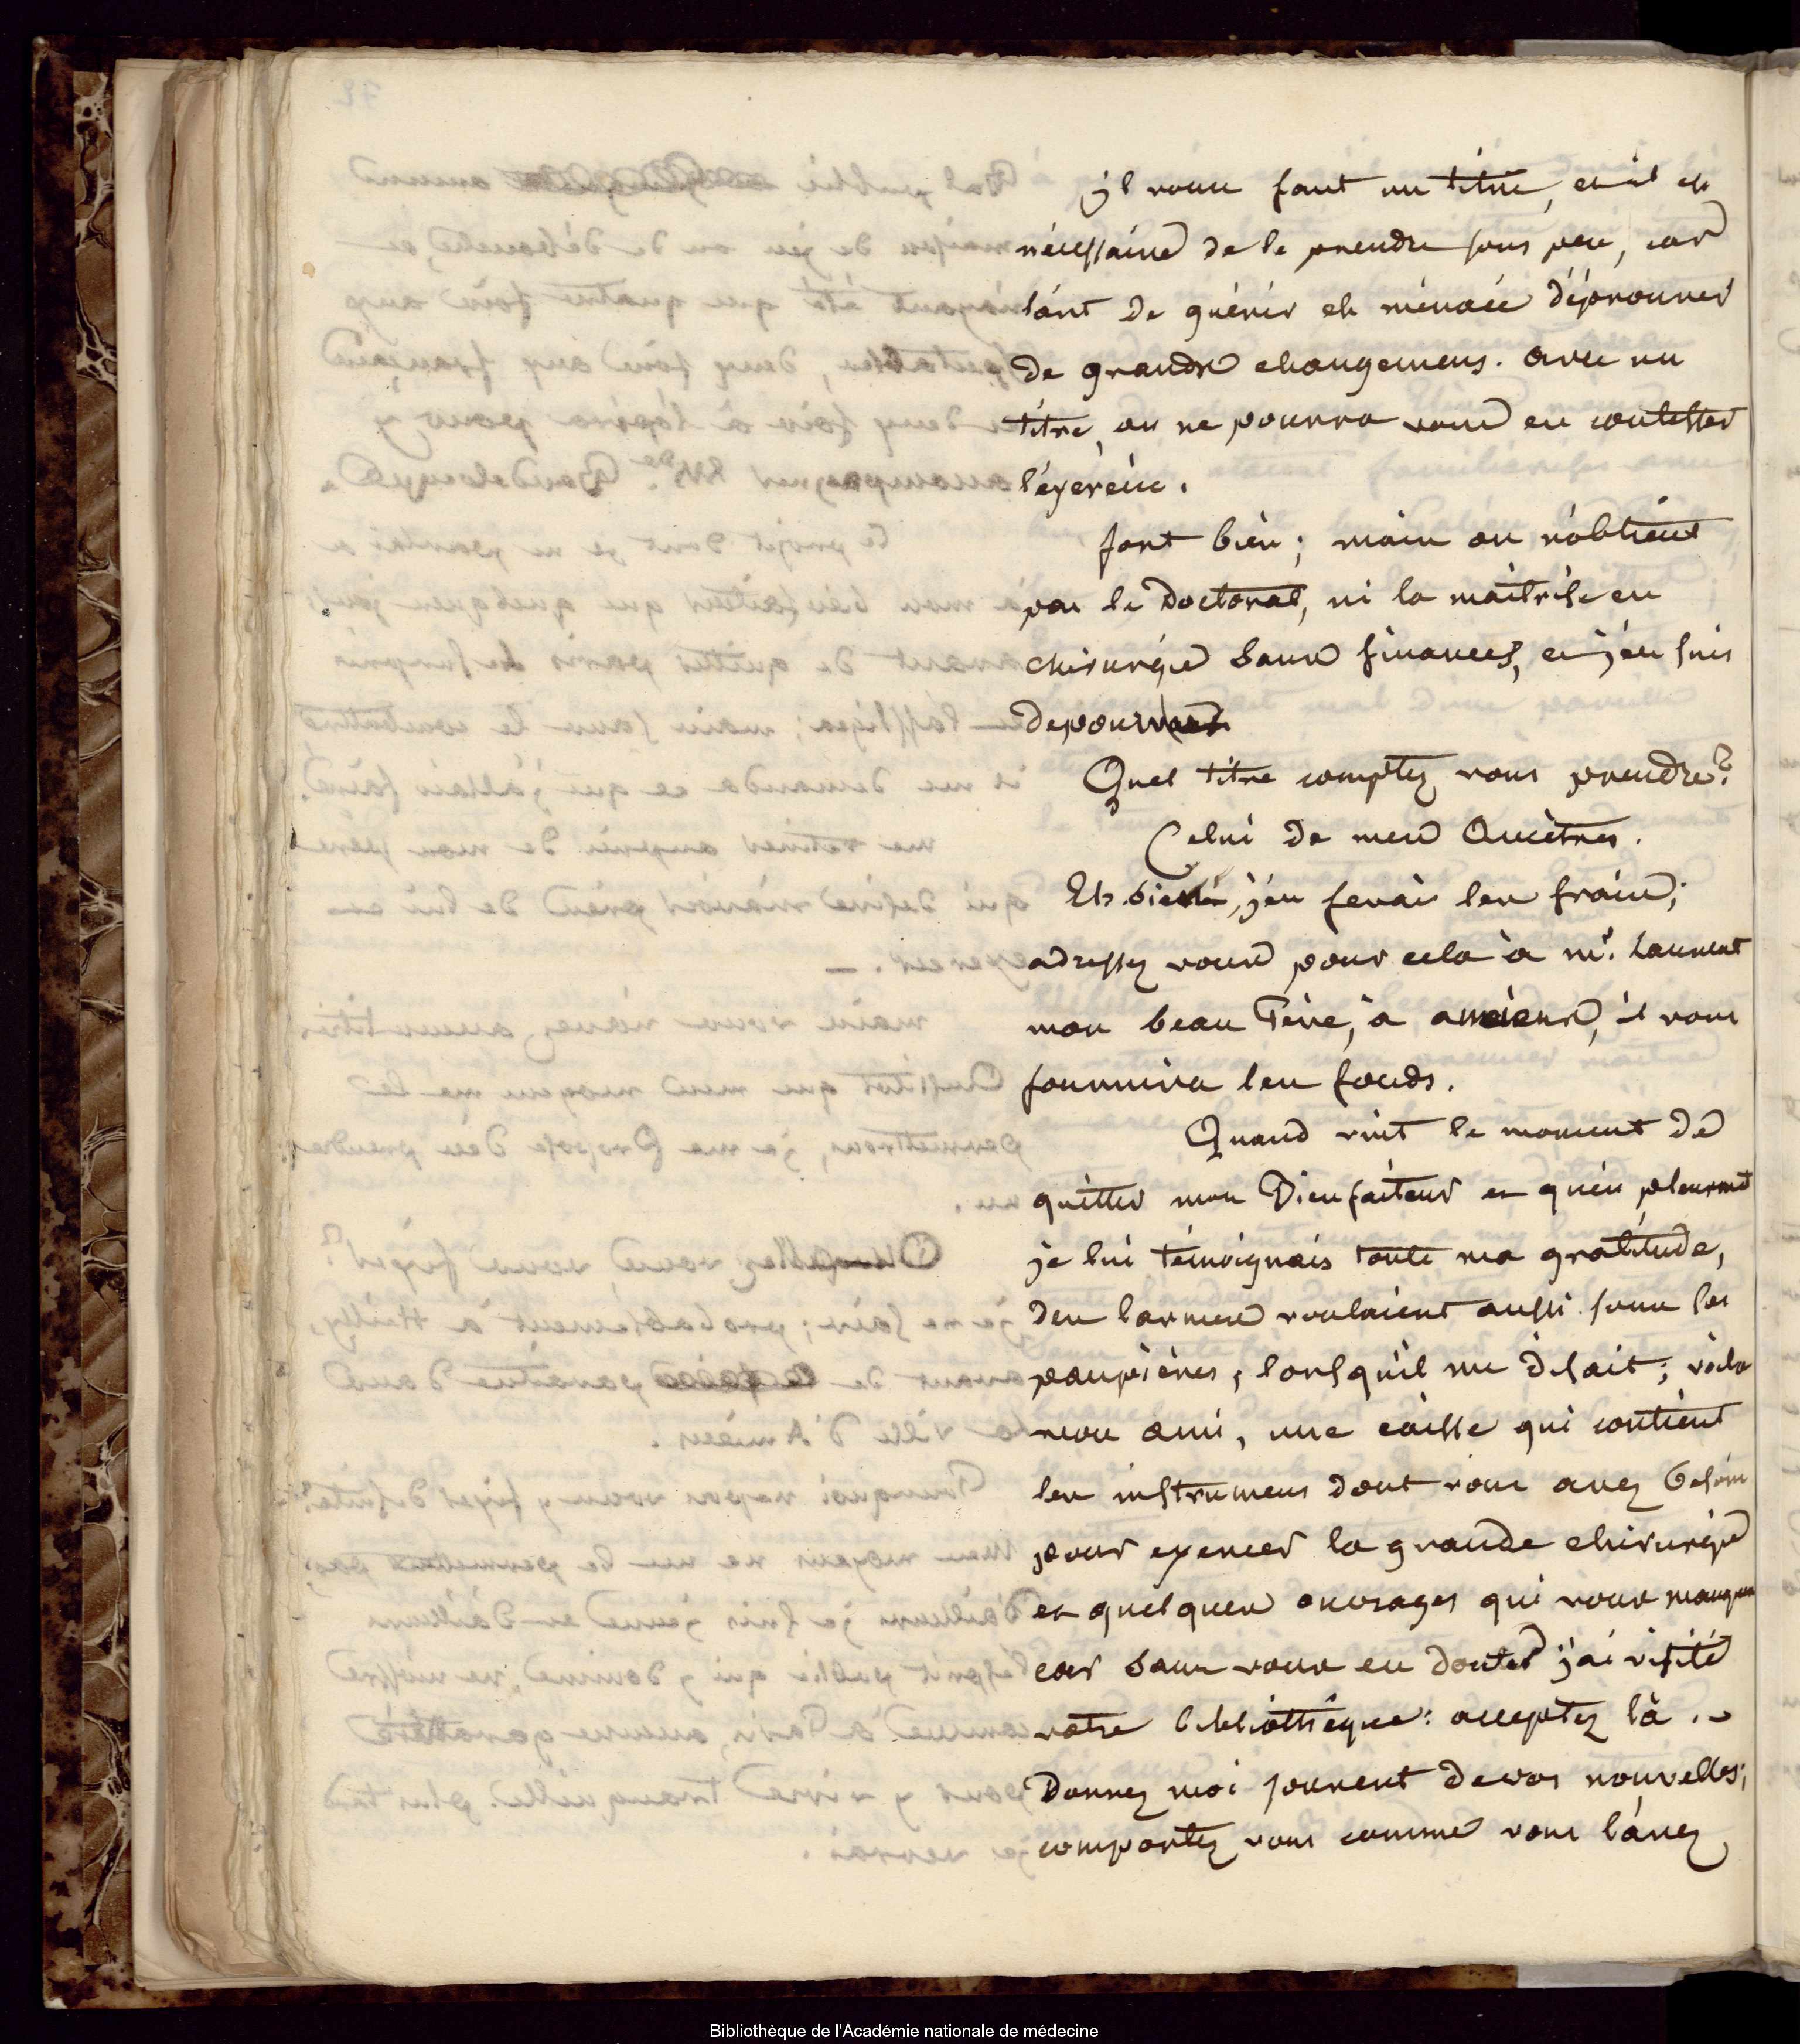 jl vous faut un titre, et il est
nécessaire de le prendre sous peu, car
l'art de guérir est ménacé d'éprouver
de grands changemens. avec un
titre, on ne pourra vous en contester
l'éxercice.
fort bien; mais on n'obtient
pas le Doctorat, ni la maitrise en
chirurgie sans finances, et j'en suis
depourvu
Quel titre comptez vous prendre?
Celui de mes Ancètres.
Eh bien, j'en ferai les frais;
adressez vous pour cela à mr. Laurent
mon beau Père, à amiens, il vous
fournira les fonds.
Quand vint le moment de
quitter mon Bienfaiteur et qu'en pleurant
je lui témoignais toute ma gratitude,
des larmes roulaient aussi sous ses
paupières, lorsqu'il me disait; voila
mon ami, une caisse qui contient
les instrumens dont vous avez besoin
pour exercer la grande chirurgie
et quelques ouvrages qui vous manquent
car sans vous en douter j'ai visité
votre bibliothèque: acceptez là. -
Donnez moi souvent de vos nouvelles;
comportez vous comme vous l'avez
Bibliothèque de l'Académie nationale de médecine